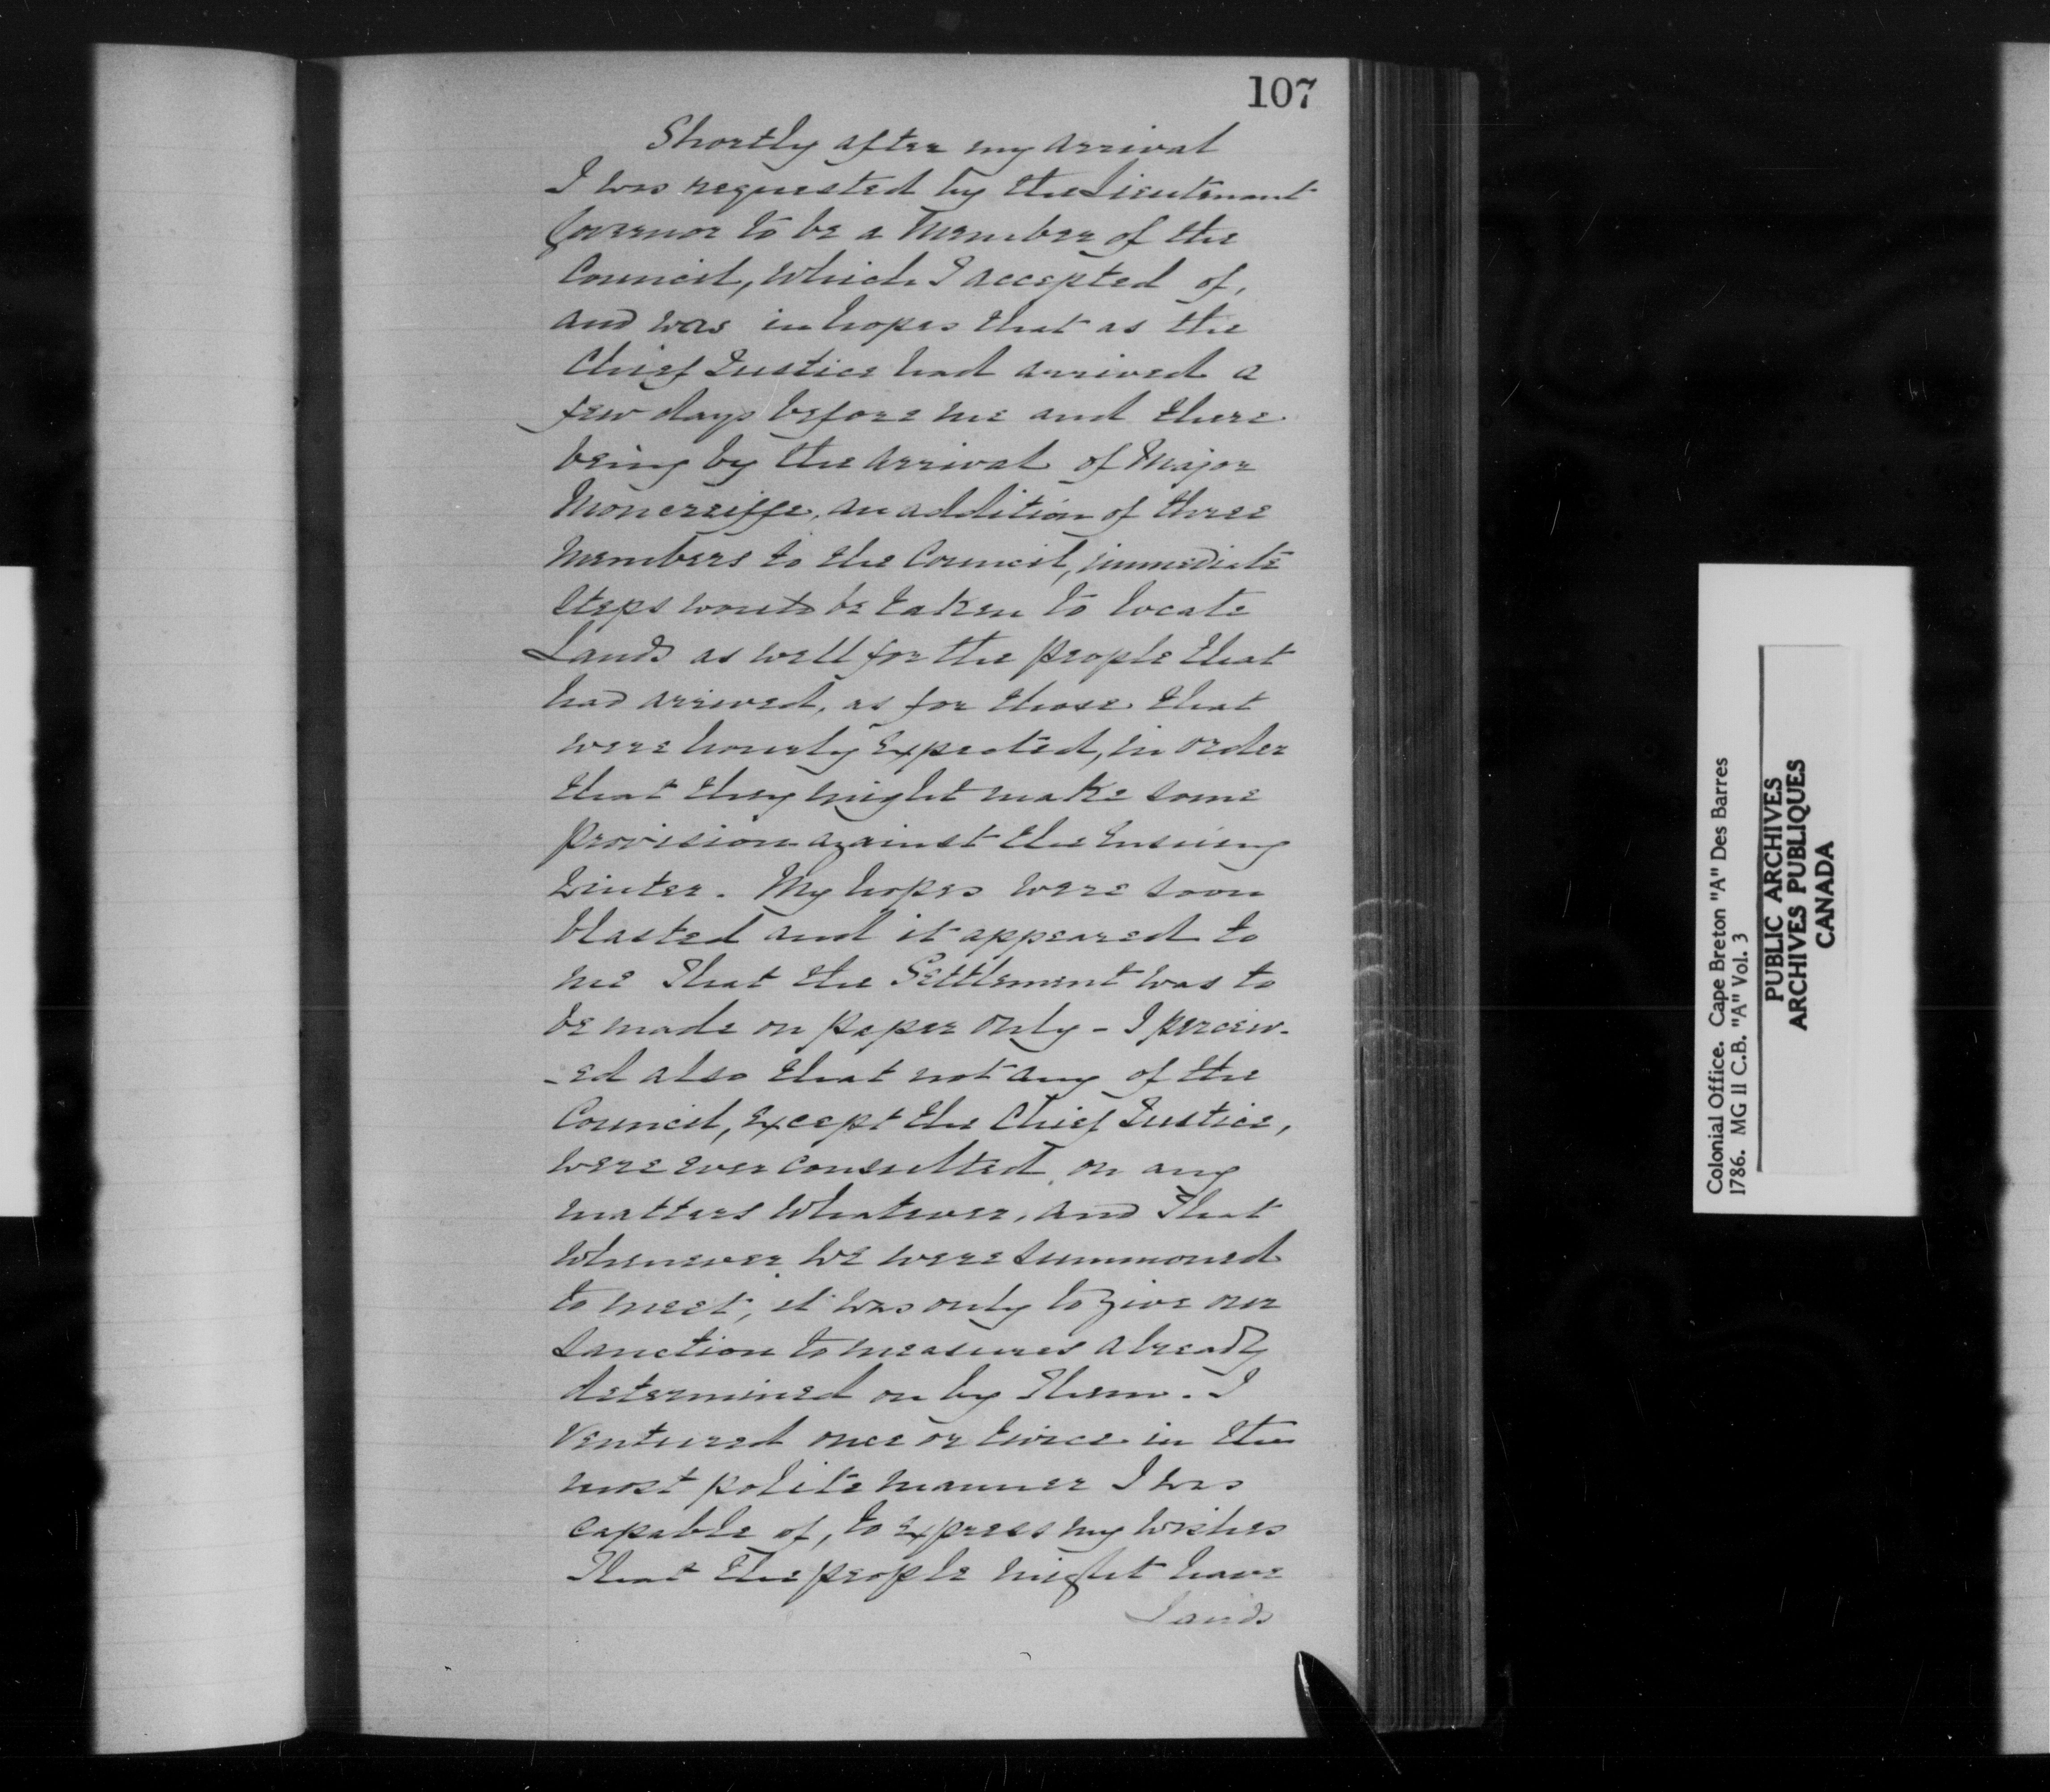 107
Shortly after my arrival
I was requested by the Lieutenant
Governor to be a Member of the
Council, which I accepted of,
and was in hopes that as the
Chief Justice had arrived a
few days before me and there
being by the arrival of Major
Moncreiffe, an addition of three
Members to the Council, immediate
steps would be taken to locate
Lands as well for the people that
had arrived, as for those that
were hourly Expected, in order
that they might make some
provision against the Ensuing
Winter. My hopes were soon
blasted and it appeared to
me That the Settlement was to
be made on paper only - I perceiv-
-ed also that not any of the
Council, Except the Chief Justice,
were ever consulted, on any
matters Whatever, and That
Whenever we were summoned
to meet, it was only to give our
sanction to measures already
determined on by Them. I
Ventured once or twice in the
most polite manner I was
capable of, to Express my wishes
That the people might have
Lands
Colonial Office. Cape Breton "A" Des Barres
1786. MG 11 C.B. "A" Vol. 3
PUBLIC ARCHIVES
ARCHIVES PUBLIQUES
CANADA